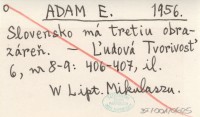 o ADAM E. 1956.
Slovensko má tretiu obra-
záreň. – Ľudová Tvorivosť
6, nr 8-9: 406-407, il.
W Lipt. Mikulaszu.